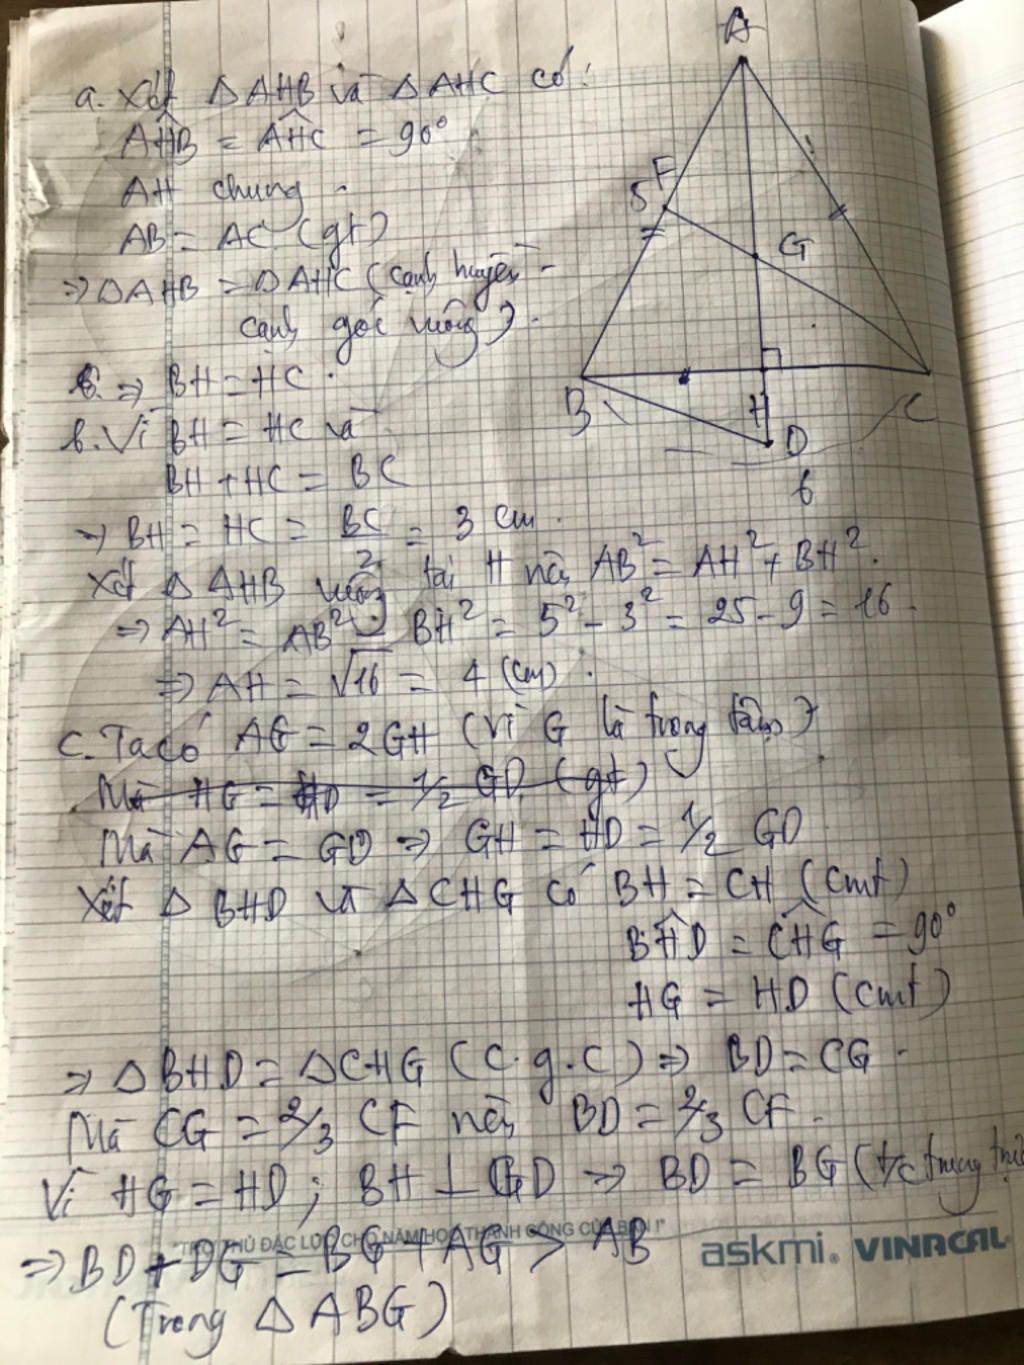 A
a. Xét Δ AHB và Δ AHC có:
AĤB = AĤC = 90°
AH chung.
AB = AC (gt)
⇒ Δ AHB = Δ AHC (cạnh huyền -
cạnh góc vuông).
F
5
G
B
H
C
D
6
b. ⇒ BH = HC.
b. Vì BH = HC và
BH + HC = BC
⇒ BH = HC = BC/2 = 3 cm.
Xét Δ AHB vuông tại H nên AB² = AH² + BH².
⇒ AH² = AB² - BH² = 5² - 3² = 25 - 9 = 16.
⇒ AH = √16 = 4 (cm).
c. Ta có AG = 2GH (vì G là trọng tâm)
Mà HG = HD = 1/2 GD (gt)
Mà AG = GD ⇒ GH = HD = 1/2 GD
Xét Δ BHD và Δ CHG có BH = CH (cmt)
BĤD = CĤG = 90°
HG = HD (cmt)
⇒ Δ BHD = Δ CHG (c.g.c) ⇒ BD = CG.
Mà CG = 2/3 CF nên BD = 2/3 CF.
Vì HG = HD; BH ⊥ GD ⇒ BD = BG (t/c trung
⇒ BD + DG = BG + AG > AB
(Trong Δ ABG)
CHO NĂM HỌC THÀNH CÔNG CỦA BẠN !"
askmi. VINACAL